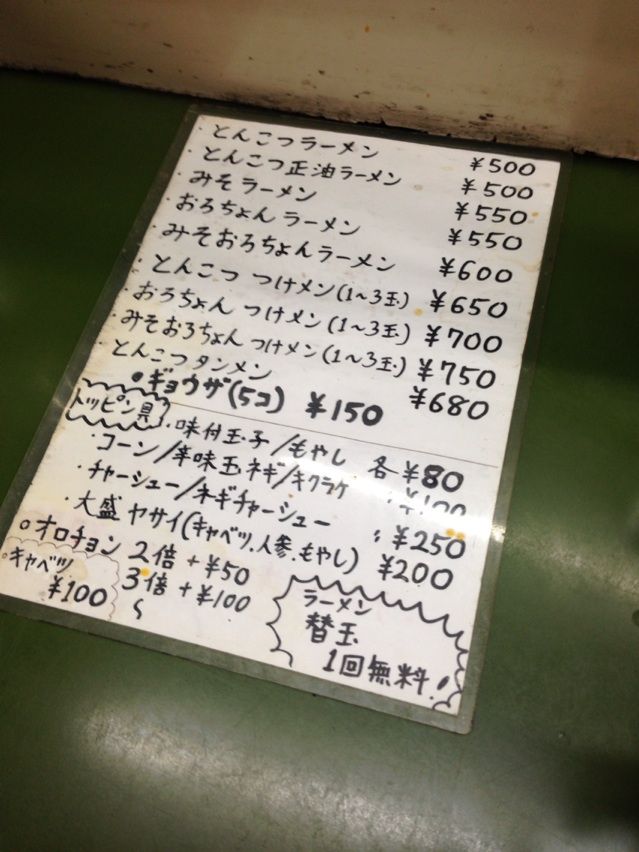 ・とんこつラーメン ¥500
・とんこつ正油ラーメン ¥500
・みそラーメン ¥550
・おろちょんラーメン ¥550
・みそおろちょんラーメン ¥600
・とんこつ つけメン(1〜3玉) ¥650
・おろちょん つけメン(1〜3玉) ¥700
・みそおろちょん つけメン(1〜3玉) ¥750
・とんこつタンメン ¥680
●ギョウザ(5コ) ¥150
トッピン具
・味付玉子/もやし 各¥80
・コーン/辛味玉ネギ/キクラゲ 〃¥100
・チャーシュー/ネギチャーシュー 〃¥250
・大盛ヤサイ(キャベツ.人参.もやし) ¥200
○オロチョン 2倍 +¥50
3倍 +¥100
○キャベツ
¥100
ラーメン
替玉
1回無料!